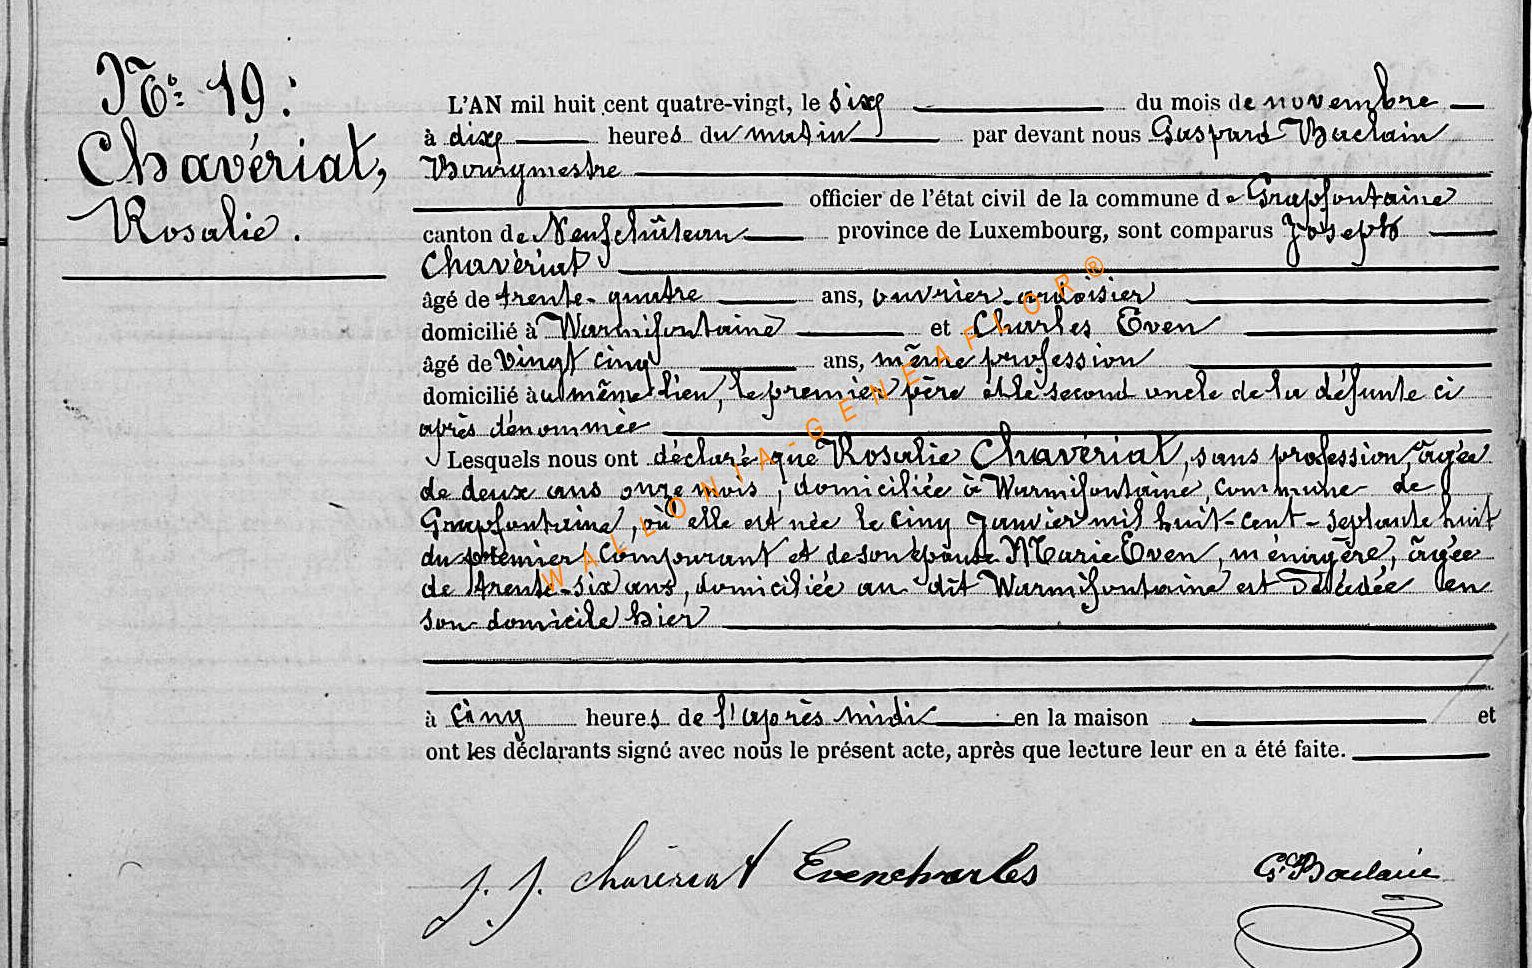 No: 19:
Chavériat,
Rosalie.
L'AN mil huit cent quatre-vingt, le six du mois de novembre
à dix heures du matin par devant nous Gaspard Baclain
Bourgmestre
officier de l'état civil de la commune de Grapfontaine
canton de Neufchâteau province de Luxembourg, sont comparus Joseph
Chavériat
âgé de trente-quatre ans, ouvrier-ardoisier
domicilié à Warmifontaine et Charles Even
âgé de vingt cinq ans, même profession
domicilié au même lien, le premier père et le second oncle de la défunte ci
après dénommée
Lesquels nous ont déclaré que Rosalie Chavériat, sans profession, âgée
de deux ans onze mois, domiciliée à Warmifontaine, commune de
Grapfontaine, où elle est née le cinq janvier mil huit-cent-septante huit
du premier comparant et de son épouse Marie Even, ménagère, âgée
de trente-six ans, domiciliée au dit Warmifontaine est décédée en
son domicile hier
à cinq heures de l'après midi en la maison et
ont les déclarants signé avec nous le présent acte, après que lecture leur en a été faite.
J. J. Chavériat Evencharles G. Baclain
WALLONIA-GENEAFLOR®